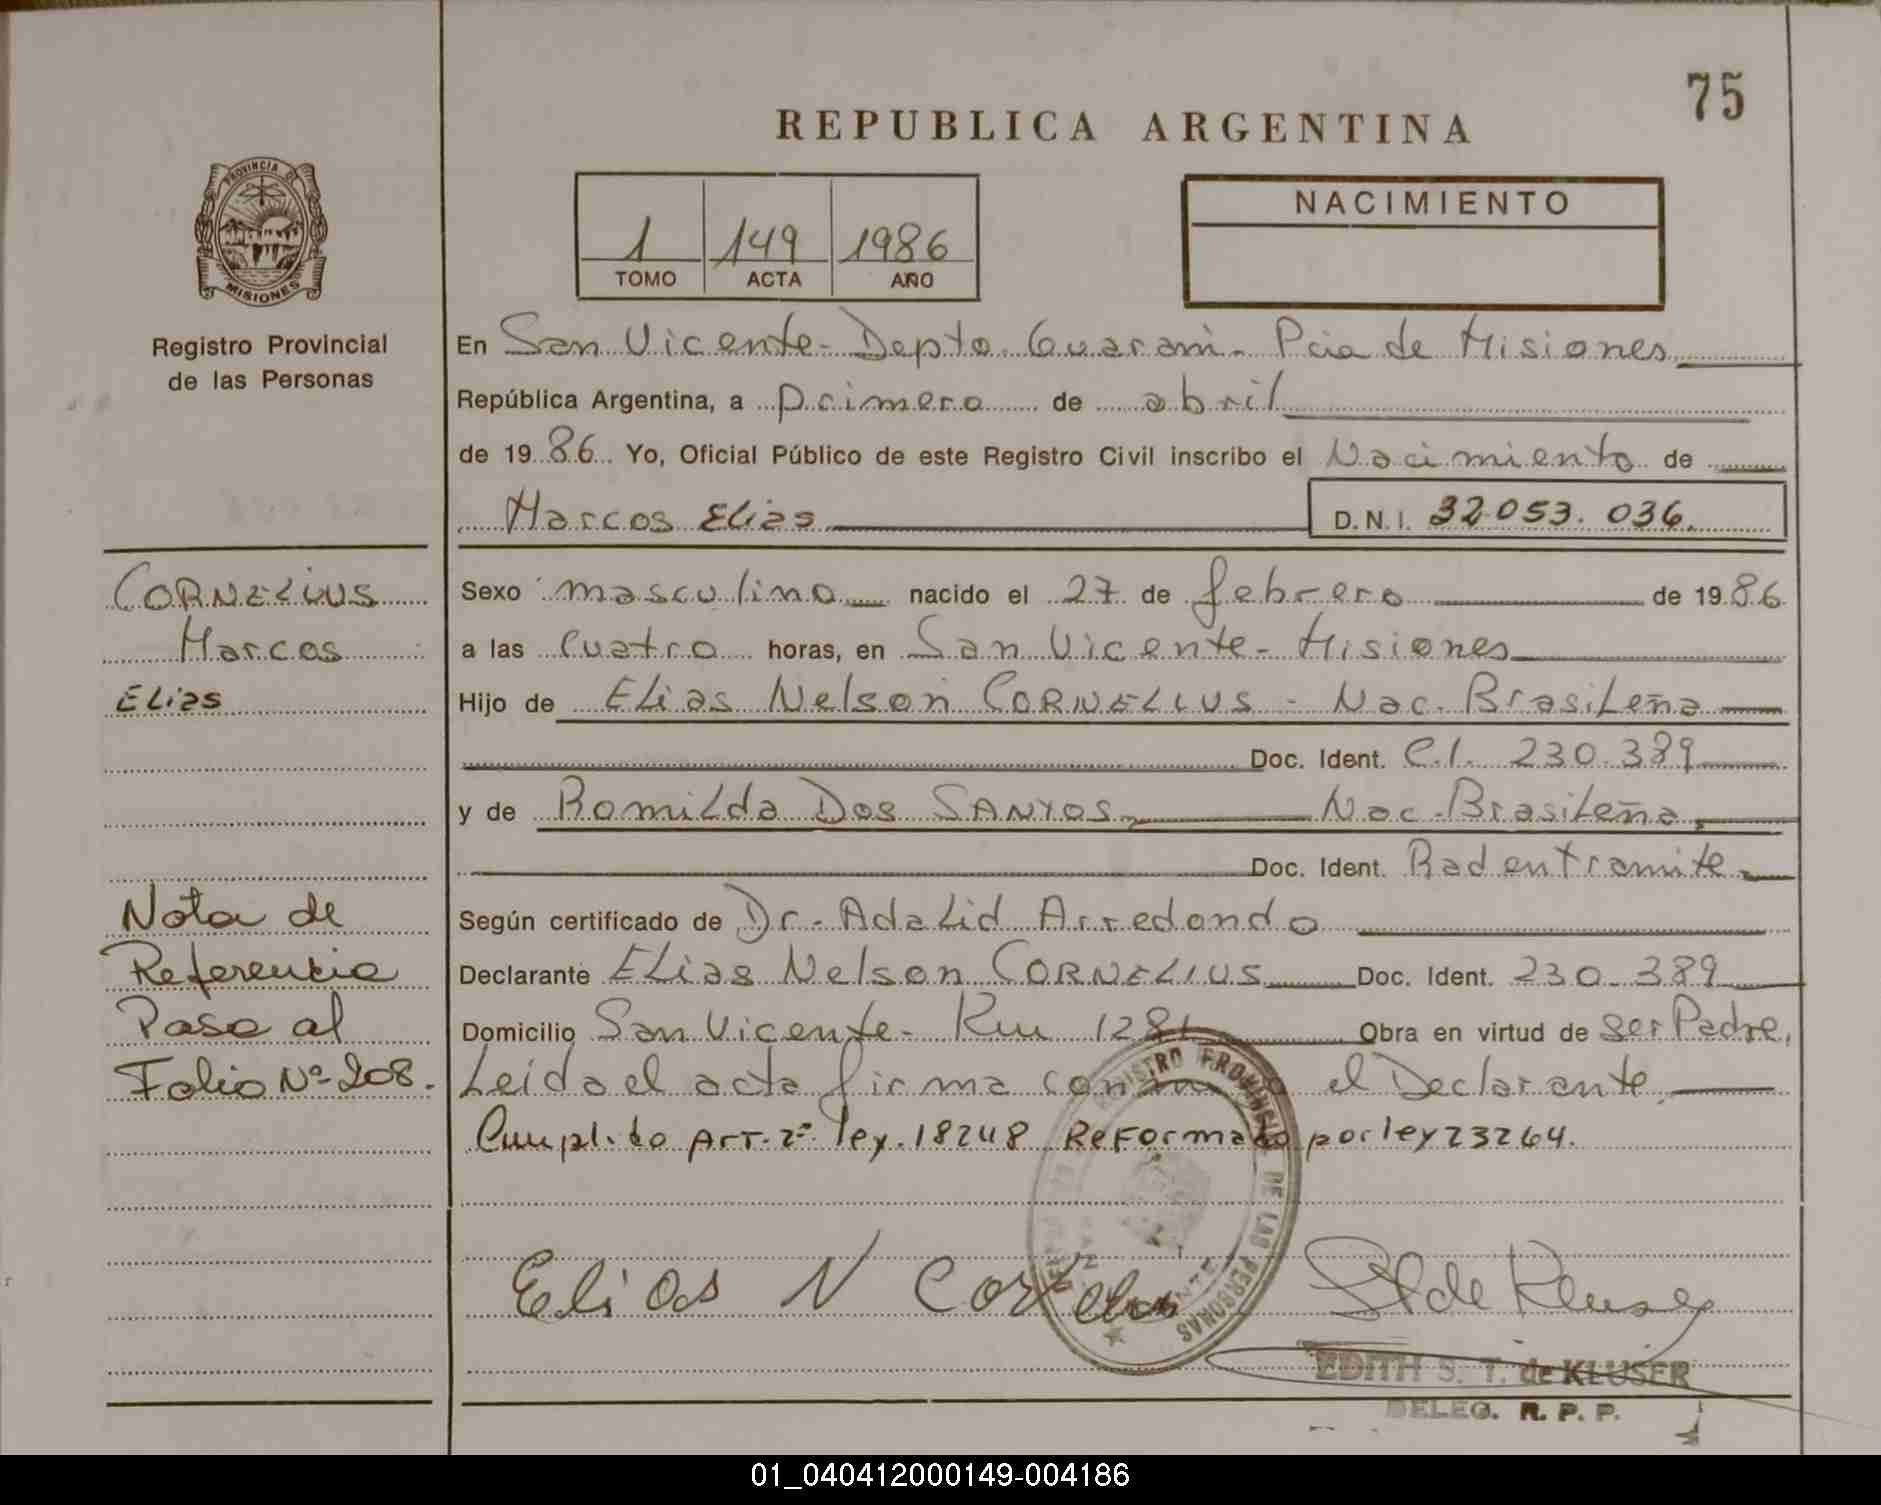 75
REPUBLICA ARGENTINA
PROVINCIA DE
MISIONES
Registro Provincial
de las Personas
1 149 1986
TOMO ACTA AÑO
NACIMIENTO
En San Vicente - Depto. Guaraní - Pcia de Misiones
República Argentina, a primero de abril
de 1986 Yo, Oficial Público de este Registro Civil inscribo el Nacimiento de
Marcos Elias D.N.I. 32.053.036.
CORNELIUS
Marcos
Elias
Sexo masculino nacido el 27 de febrero de 1986
a las cuatro horas, en San Vicente - Misiones
Hijo de Elias Nelson CORNELIUS - Nac. Brasileña
Doc. Ident. C.I. 230.389
y de Romilda Dos SANTOS, Nac. Brasileña,
Doc. Ident. Rad en tramite
Nota de
Referencia
Pasa al
Folio Nº 208.
Según certificado de Dr. Adalid Arredondo
Declarante Elias Nelson CORNELIUS Doc. Ident. 230.389
Domicilio San Vicente - Km 1281 Obra en virtud de ser Padre,
Leida el acta firma con el Declarante
Cumplido Art. 2º ley 18248 Reformado por ley 23264.
REGISTRO PROVINCIAL DE LAS PERSONAS
Elias N Cornelius
EDITH S. T. de KLUSER
DELEG. R. P. P.
01_040412000149-004186